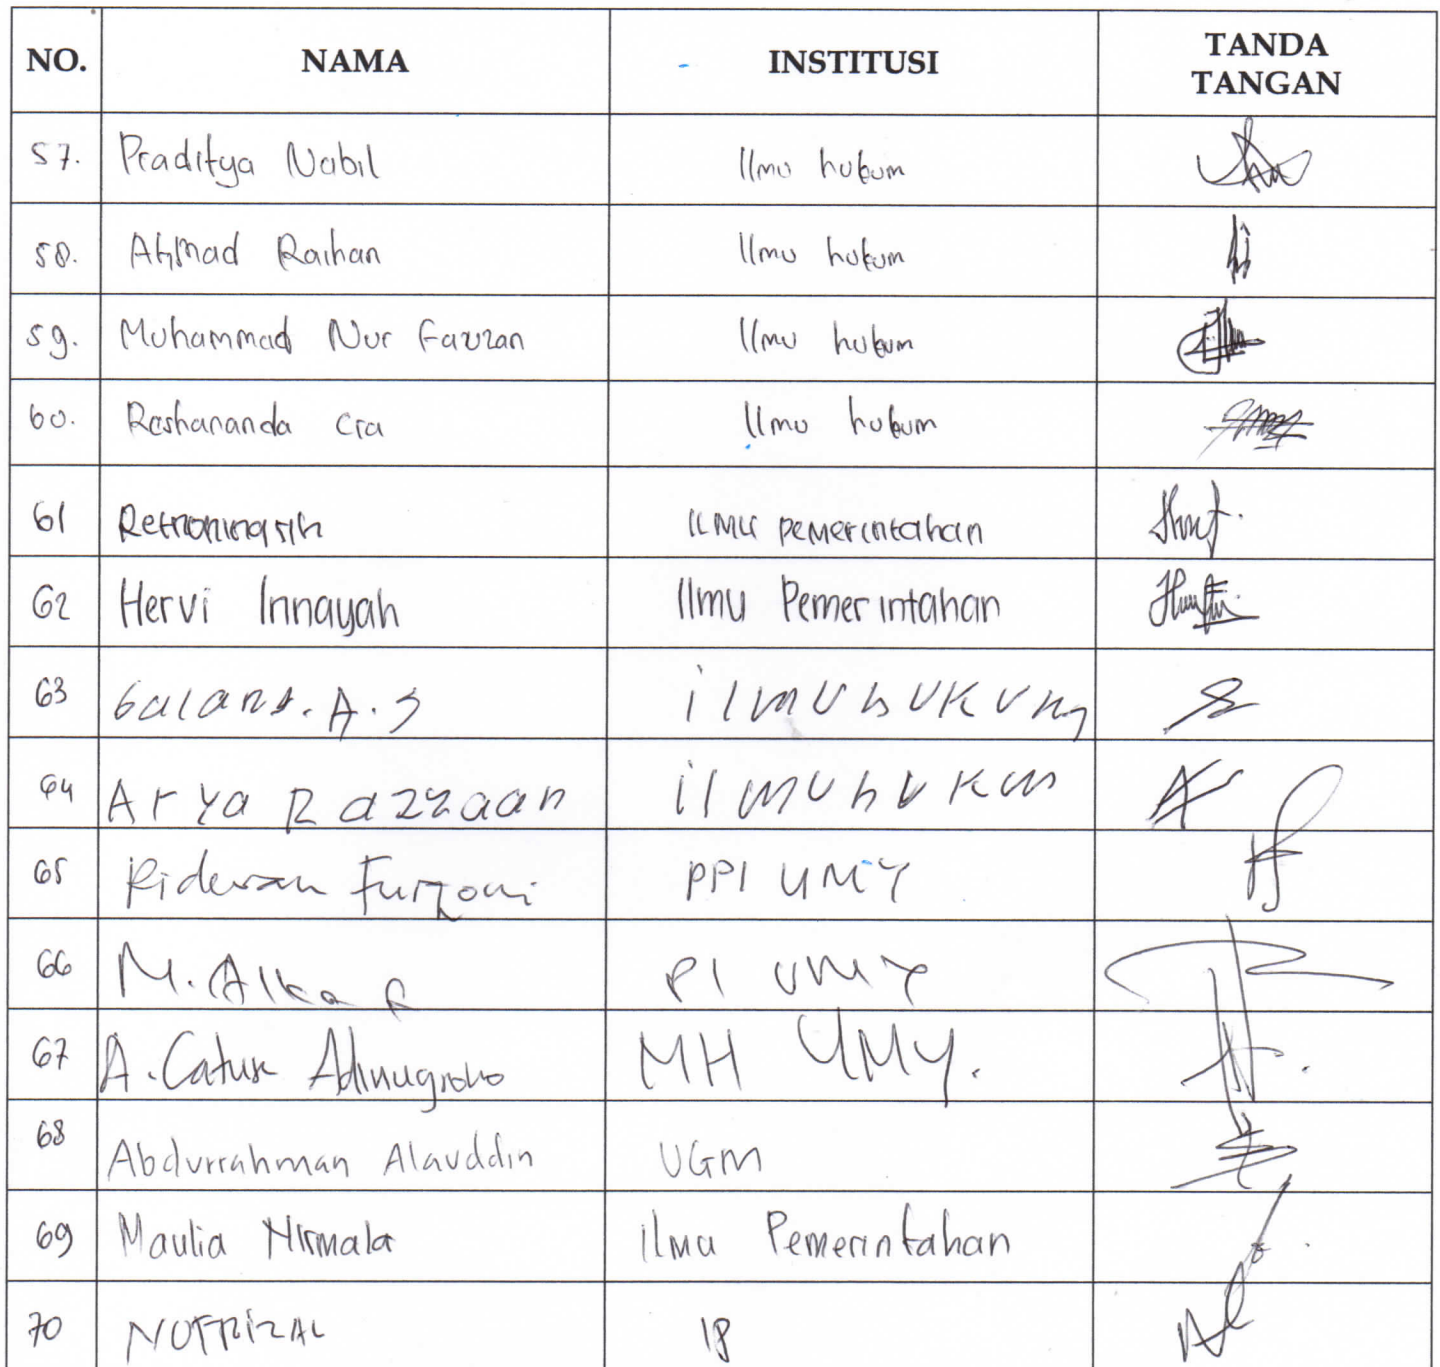 NO. NAMA INSTITUSI TANDA TANGAN
57. Praditya Nabil Ilmu hukum
58. Ahmad Raihan Ilmu hukum
59. Muhammad Nur Fauzan Ilmu hukum
60. Reshananda Cra Ilmu hukum
61 Retnoningsih ILMU pemerintahan
62 Hervi Innayah Ilmu Pemerintahan
63 Galang. A. S ilmu hukum
64 Arya Razzaan ilmu hukum
65 Ridwan Furqoni PPI UMY
66 M. Alkaf PI UMY
67 A. Catur Adinugroho MH UMY.
68 Abdurrahman Alauddin UGM
69 Maulia Nirmala ilmu Pemerintahan
70 NOFRIZAL IP